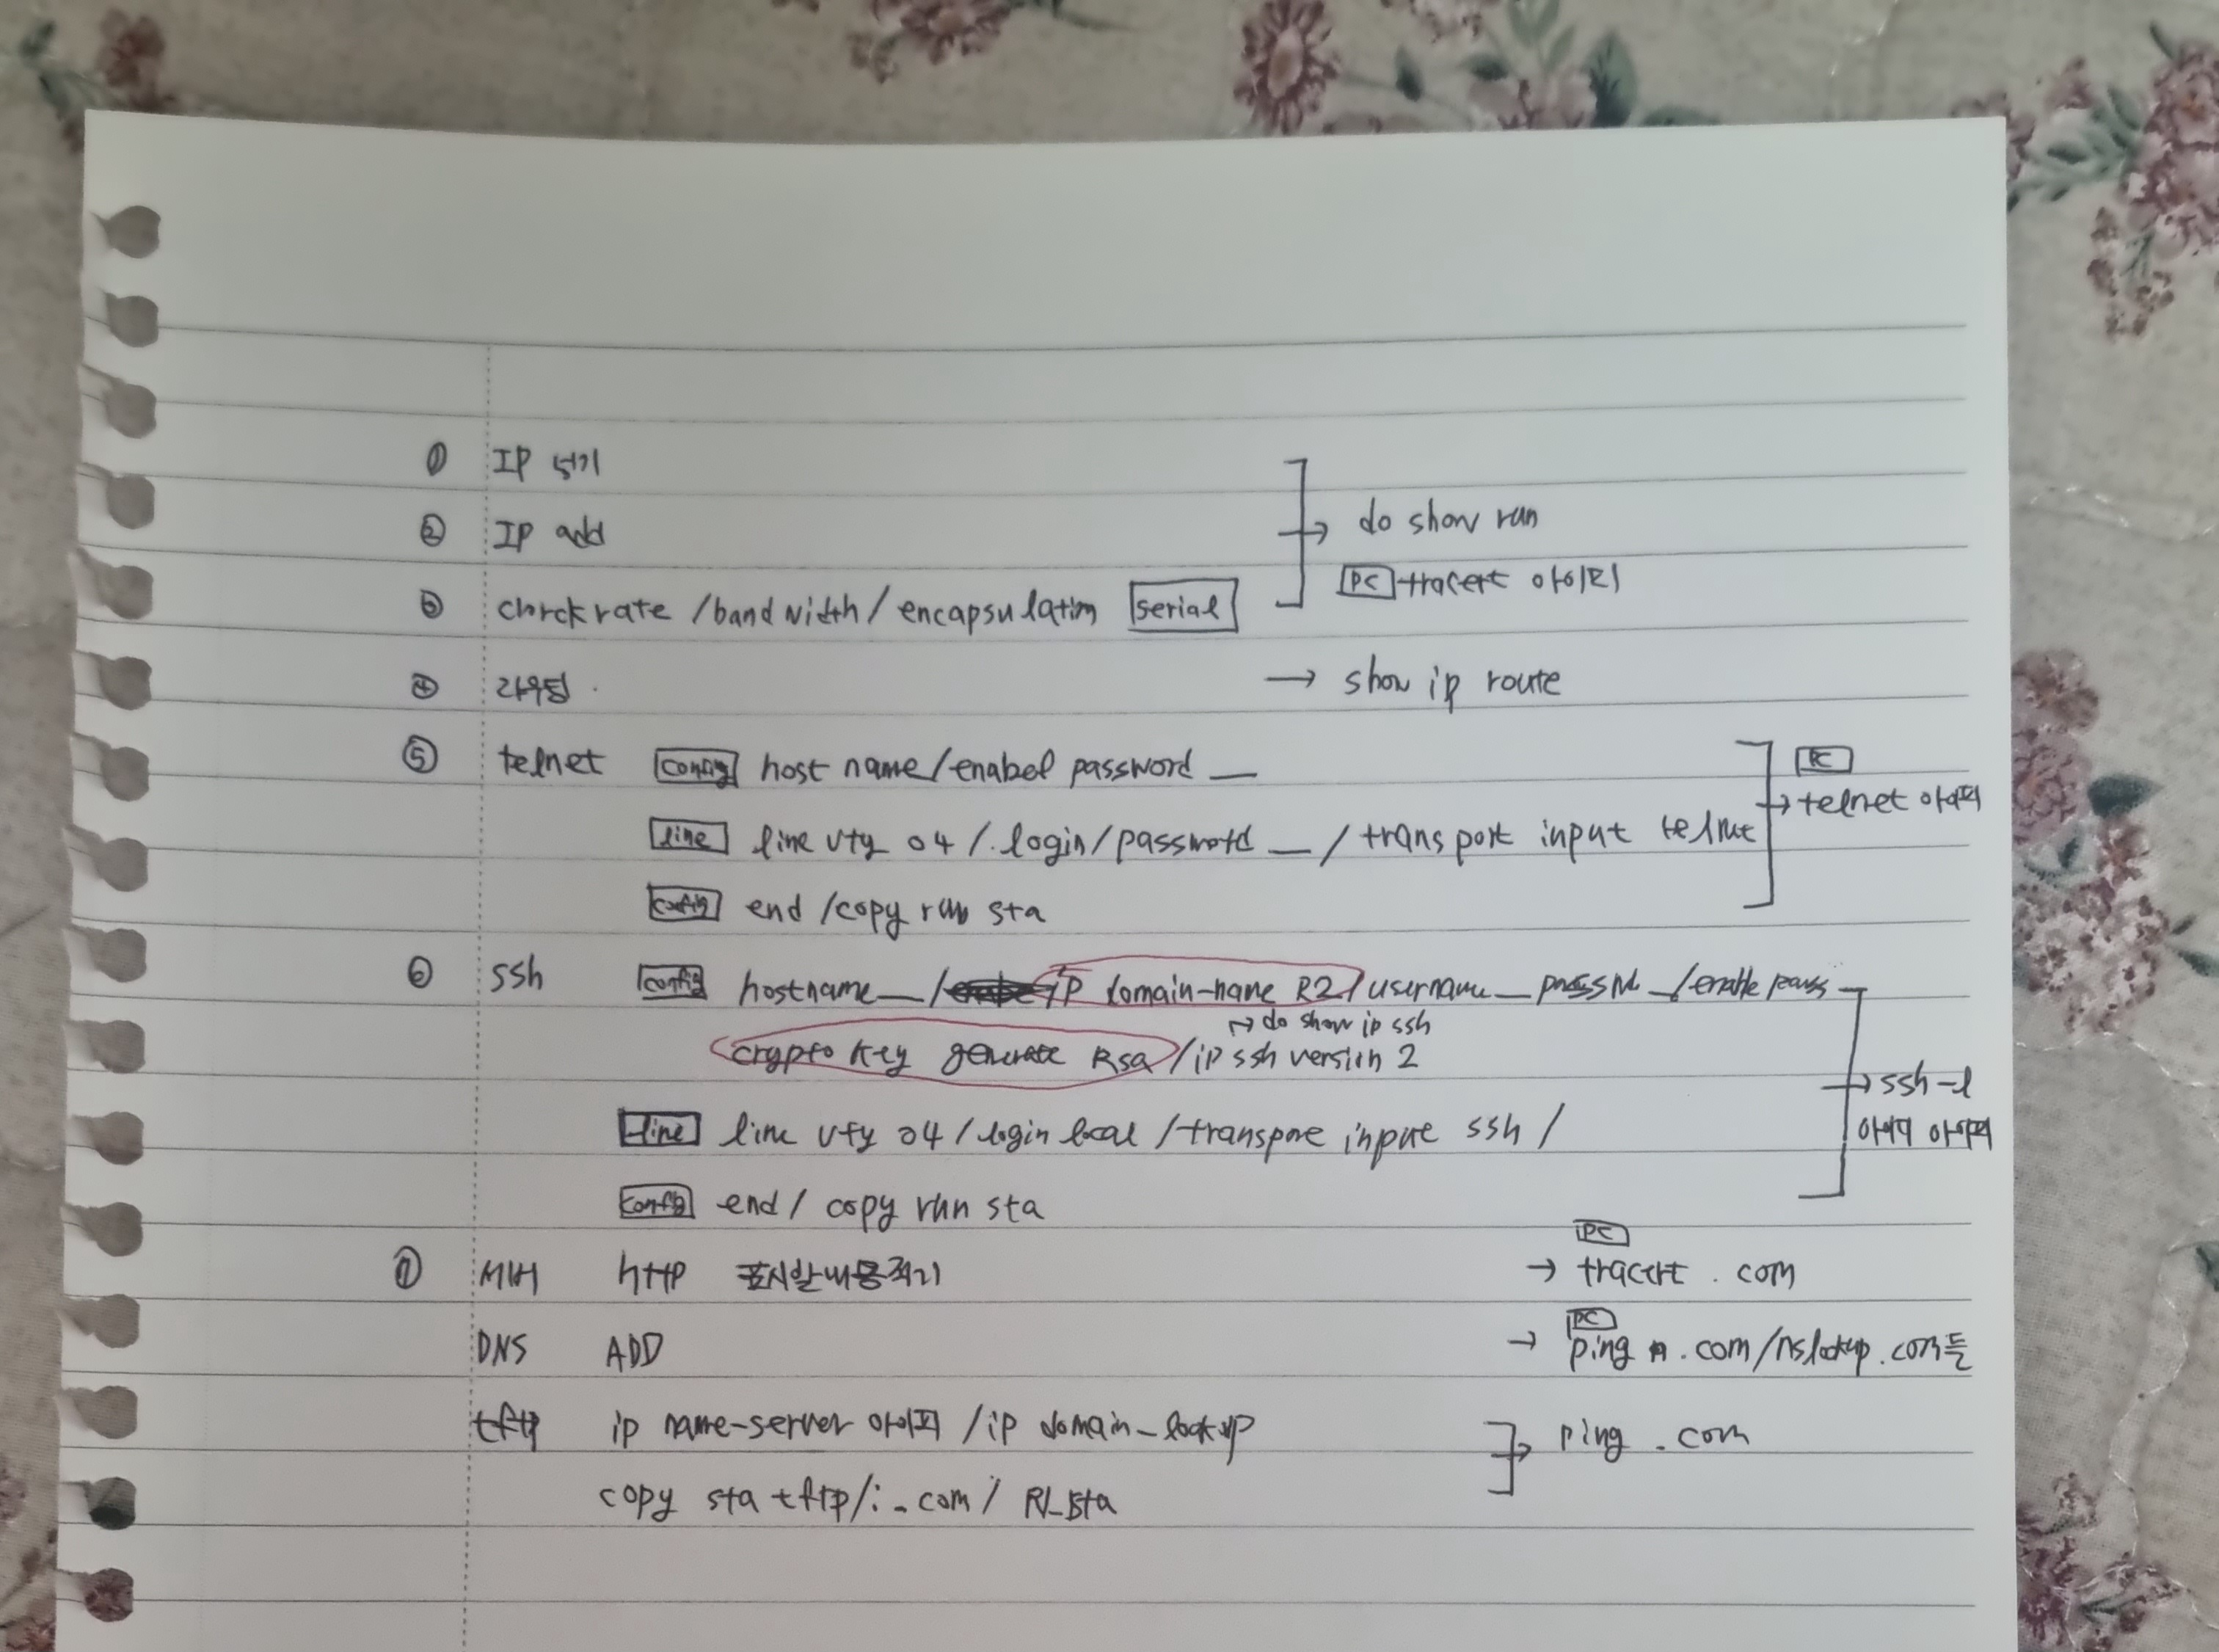 ① IP 넣기
② IP add
→ do show run
③ clockrate / bandwidth / encapsulation serial
PC tracert 아이피
④ 라우팅. → show ip route
⑤ telnet config host name/enabel password _
PC
→ telnet 아이피
line line vty 04 / login/password _ / transport input telnet
config end /copy run sta
⑥ ssh config hostname_/ip domain-name R2/username_passwd_/enable pass
↦ do show ip ssh
crypto key generate Rsa /ip ssh version 2
→ ssh-l
아이디 아이피
line line vty 04 / login local / transport input ssh /
config end / copy run sta
PC
⑦ 서버 http 표시할내용적기 → tracert . com
PC
DNS ADD → ping . com/nslookup.com등
tftp ip name-server 아이피 / ip domain_lookup
→ ping . com
copy sta tftp/:_.com / R1_sta